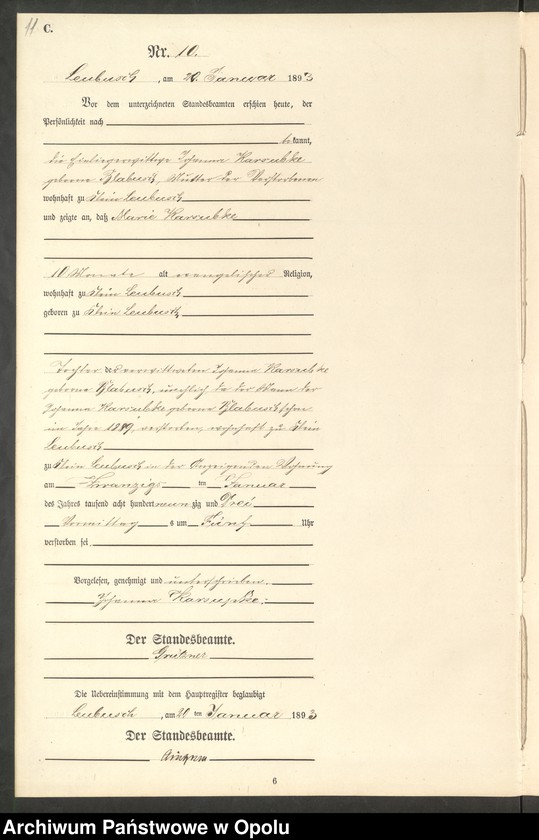 11 C.
Nr. 10.
Leubusch, am 20. Januar 1893
Vor dem unterzeichneten Standesbeamten erschien heute, der
Persönlichkeit nach
bekannt,
die Einliegerwittwe Johanna Karsubke
geborne Blabusch, Mutter der Verstorbenen
wohnhaft zu Klein Leubusch
und zeigte an, daß Marie Karsubke
10 Monate alt evangelischer Religion,
wohnhaft zu Klein Leubusch
geboren zu Klein Leubusch
Tochter der verwittweten Johanna Karsubke
geborne Blabusch, unehlich da der Mann der
Johanna Karsubke geborne Blabusch schon
im Jahre 1889, verstorben, wohnhaft zu Klein
Leubusch
zu Klein Leubusch in der Wohnung
am Zwanzigsten Januar
des Jahres tausend acht hundert neunzig und Drei
Vormittags um Fünf Uhr
verstorben sei
Vorgelesen, genehmigt und unterschrieben.
Johanna Karsupke.
Der Standesbeamte.
Die Uebereinstimmung mit dem Hauptregister beglaubigt
Leubusch, am 20 ten Januar 1893
Der Standesbeamte.
6
Archiwum Państwowe w Opolu